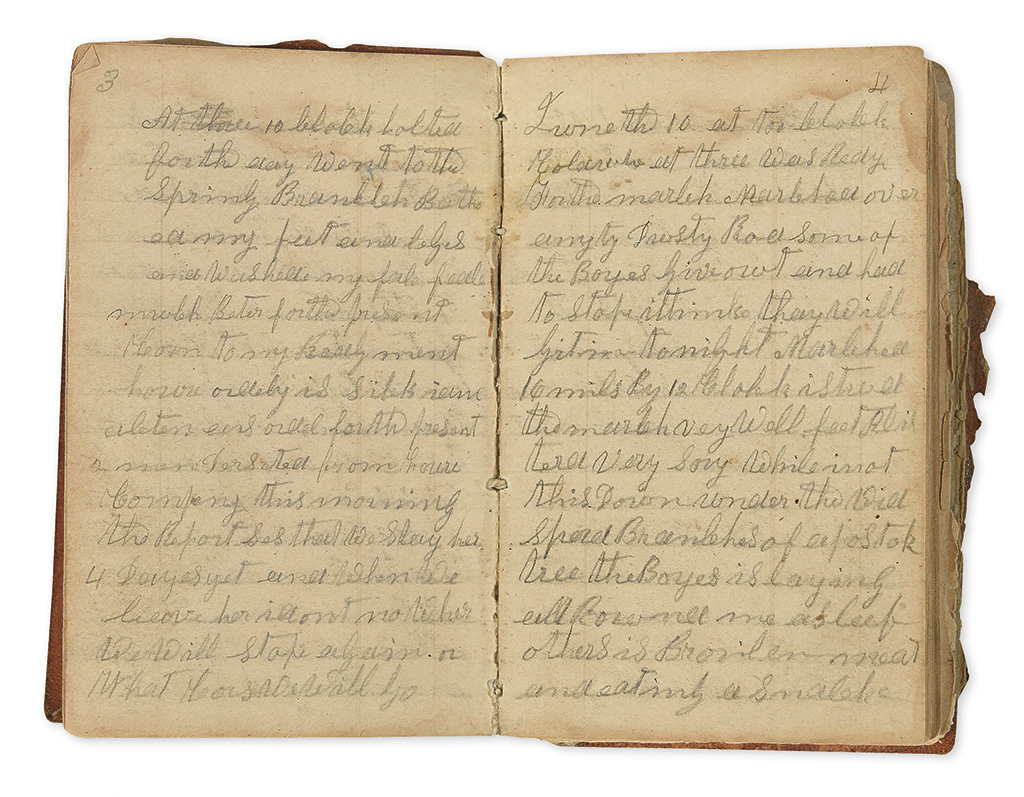 3
At three 10 Clock holted
forth day Went to the
Spring Branch Bath
ed my feet and leges
and Washed my feel
much Beter forth present
to my ment
houre is Sick
forth present
2 men Derseted from houre
Company this morning
the Report Ses that We Stay her
4 Dayes yet and When We
leeave her i dont no Wher
We Will Stop again or
What We Will Go
4
June th 10 at to Clock
at three Was Redy
For the march Marched over
a Dusty Road Some of
the Boyes give owt and had
to Stop i think thay Will
git in to night Marched
16 mils By 12 Clock i stud
the march vey Well feet Blis
terd Very Sory While i rot
this Down under the Wid
Spred Branches of a post ok
tree the Boyes is laying
all Rownd me a sleep
others is Broilen meat
and eating a Snack